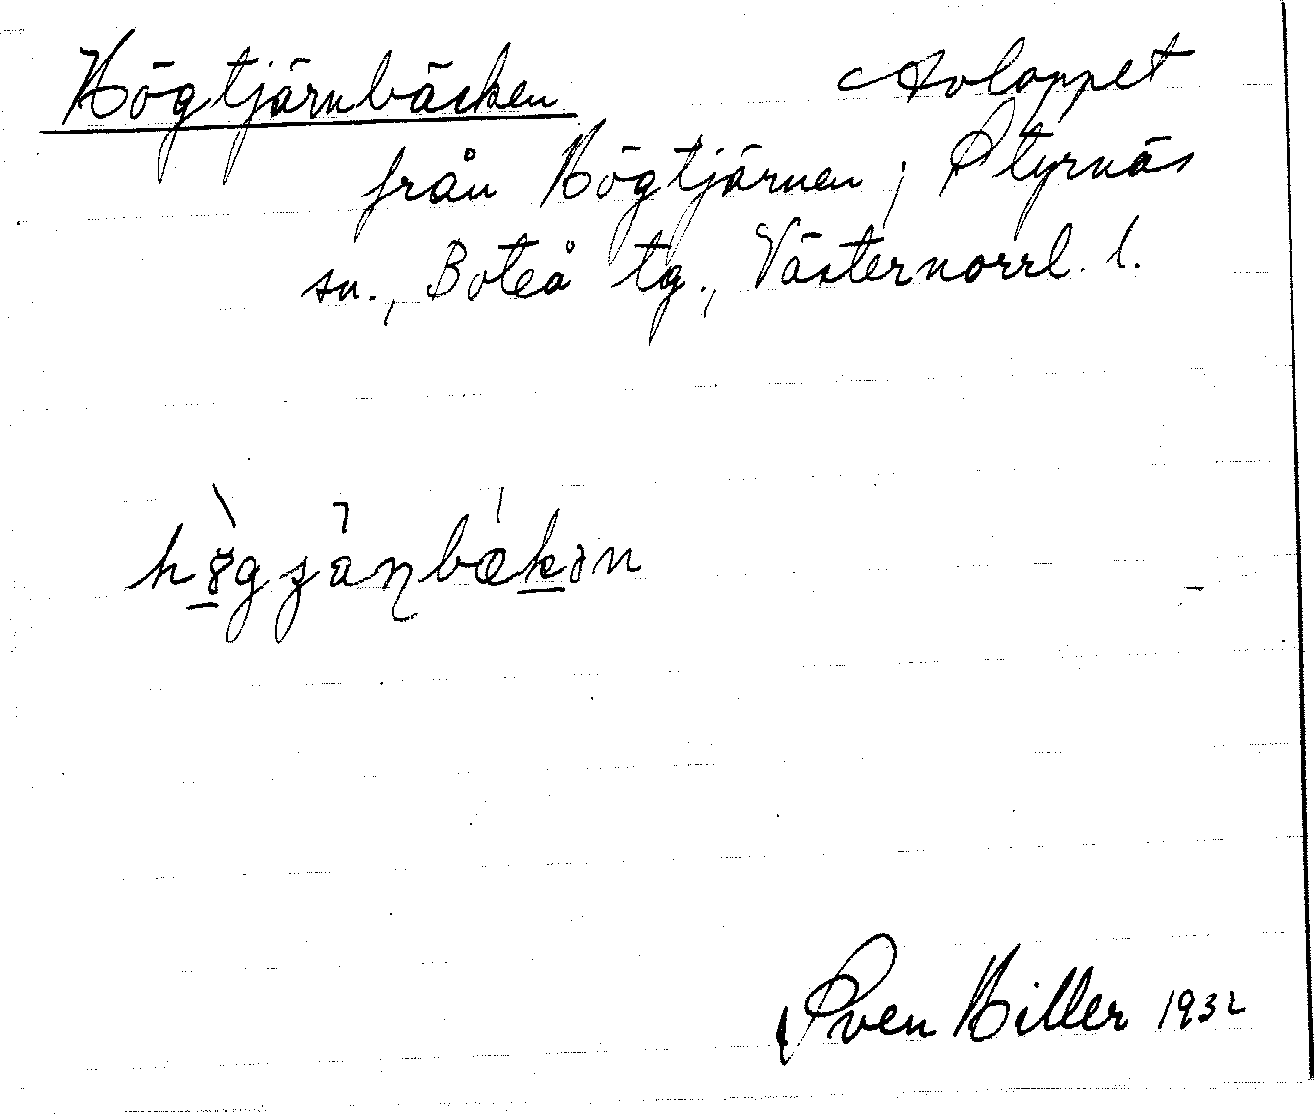 Högtjärnbäcken Avloppet
från Högtjärnen, Styrnäs
sn., Boteå tg., Västernorrl. l.
Sven Hiller 1932